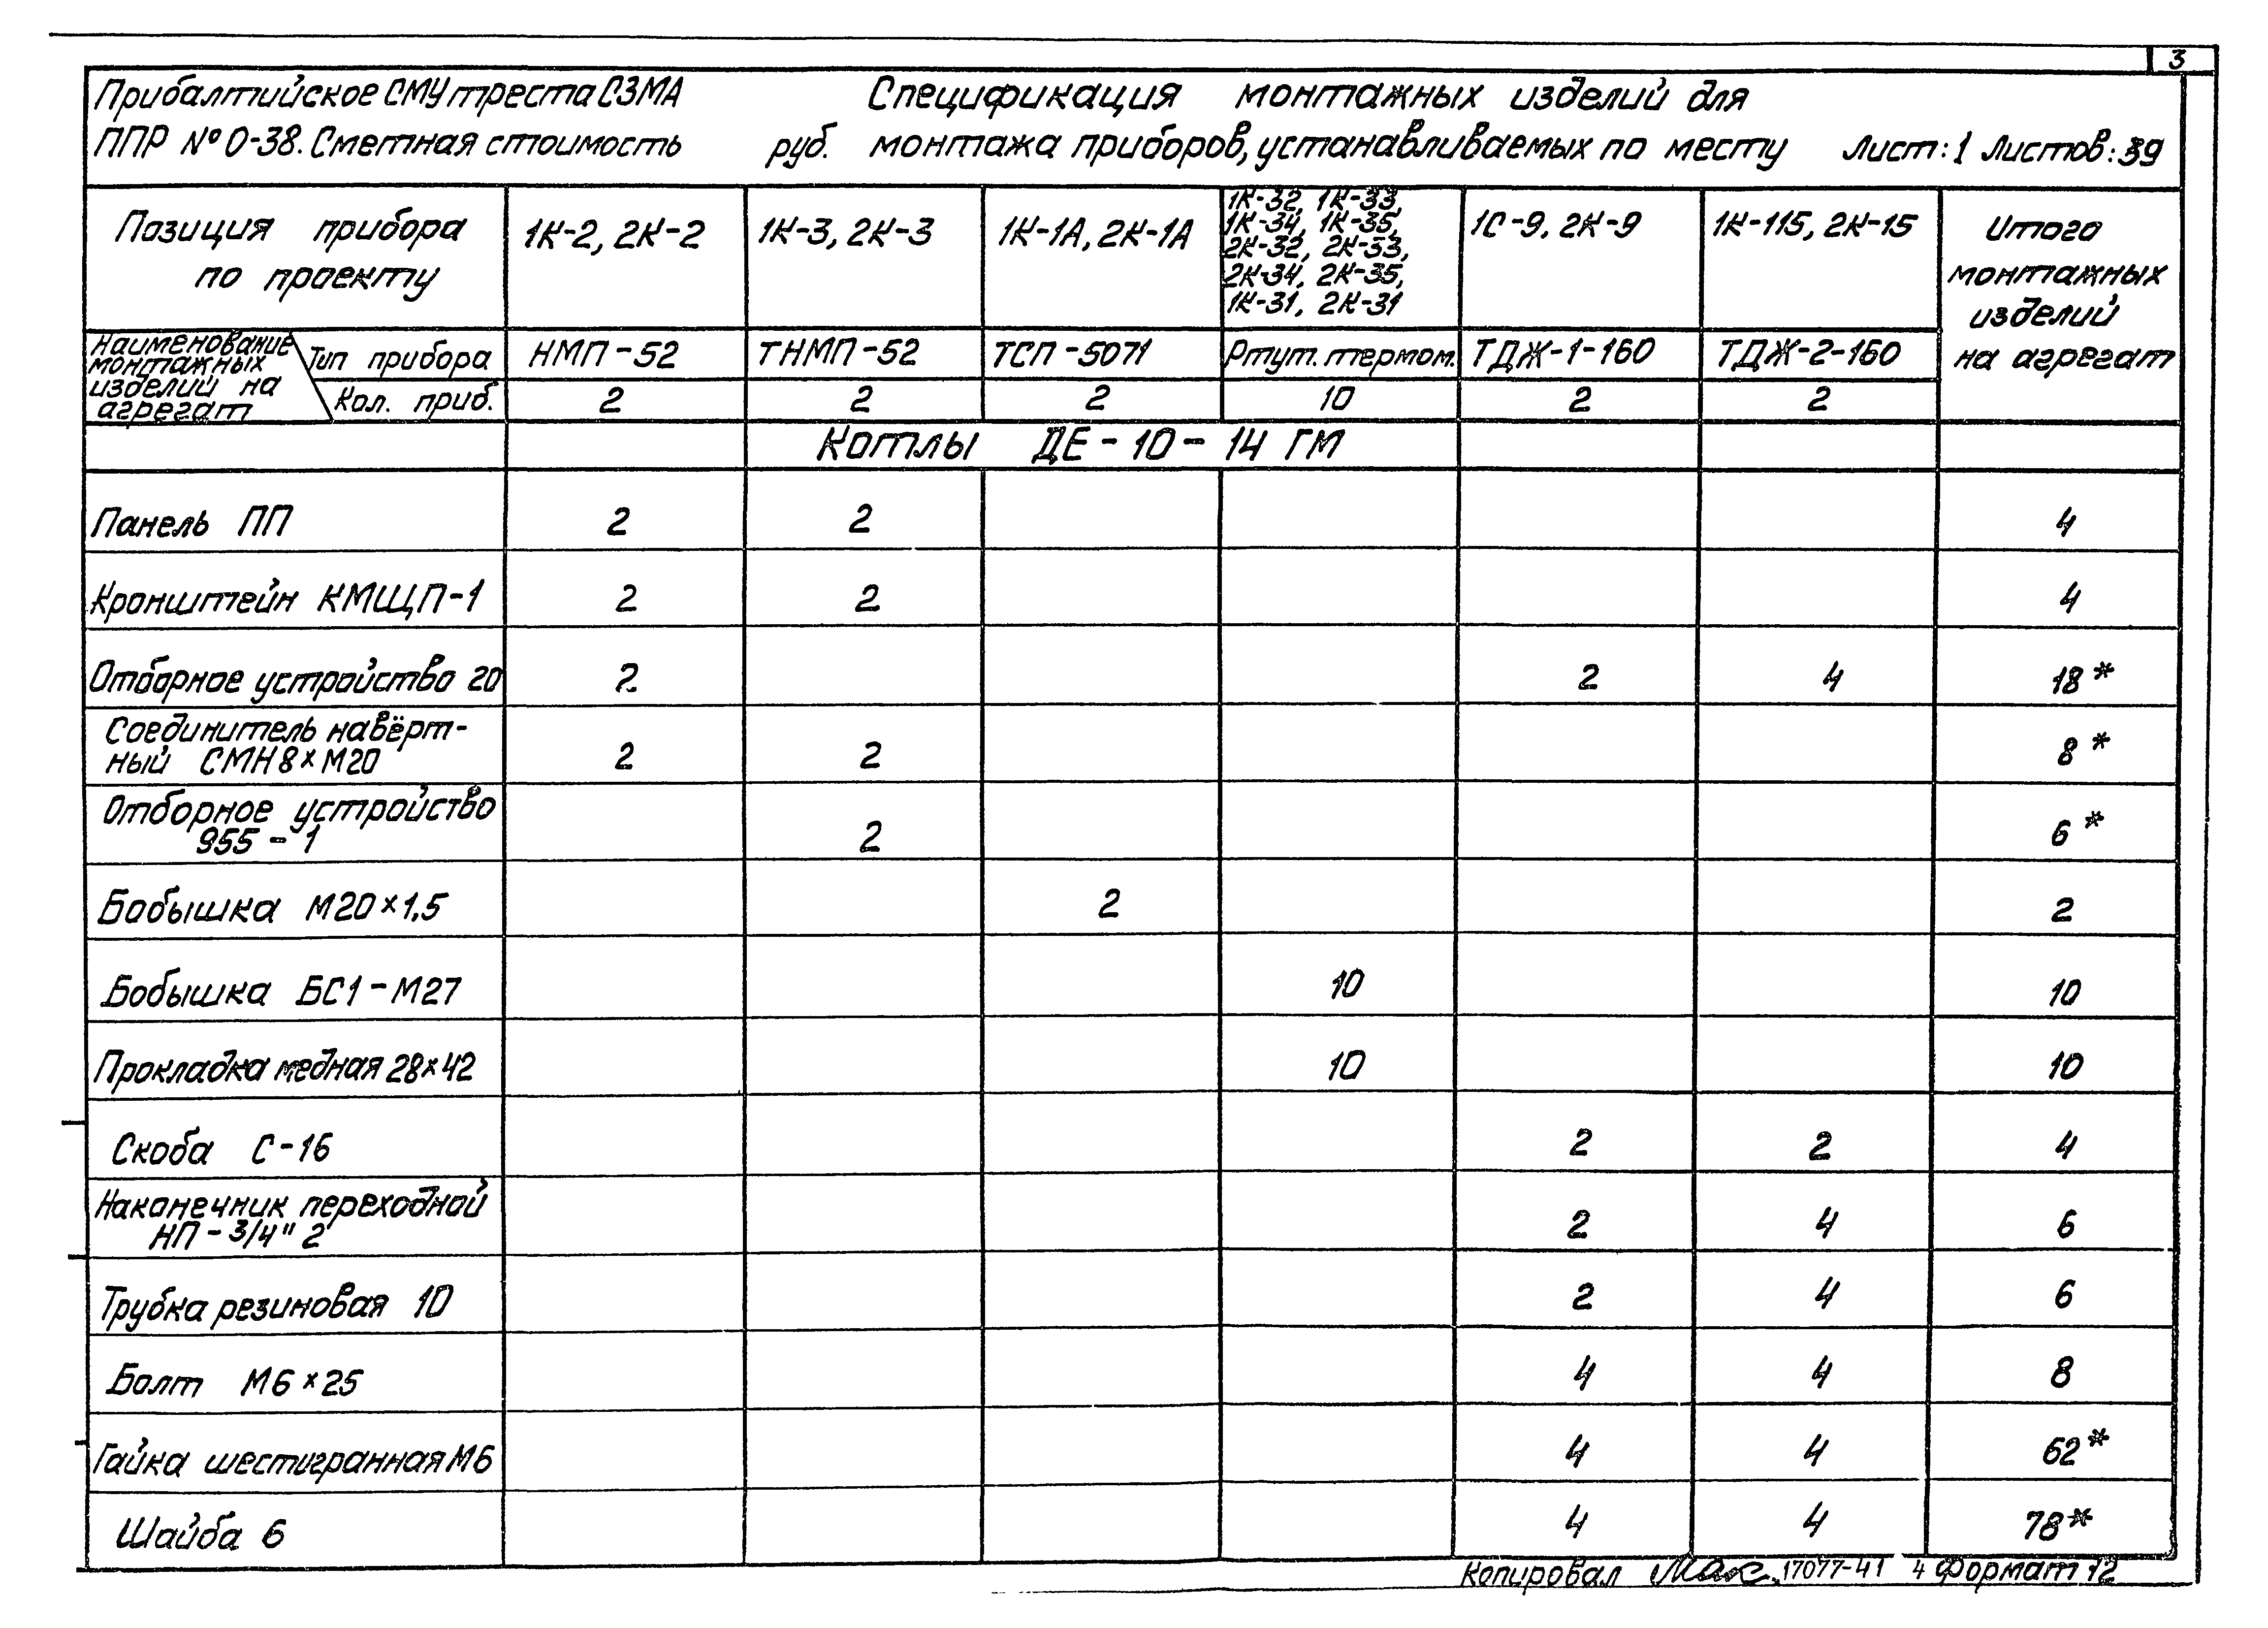 3
Прибалтийское СМУ треста СЗМА Спецификация монтажных изделий для
ППР № 0-38. Сметная стоимость руб. монтажа приборов, устанавливаемых по месту Лист: 1 Листов: 39
Позиция прибора по проекту
1К-2, 2К-2
1К-3, 2К-3
1К-1А, 2К-1А
1К-32, 1К-33,
1К-34, 1К-35,
2К-32, 2К-33,
2К-34, 2К-35,
1К-31, 2К-31
1С-9, 2К-9
1К-115, 2К-15
Итого
монтажных
изделий
на агрегат
Наименование
монтажных
изделий на
агрегат
Тип прибора НМП-52 ТНМП-52 ТСП-5071 Ртут. термом. ТДЖ-1-160 ТДЖ-2-160
Кол. приб. 2 2 2 10 2 2
Котлы ДЕ-10-14 ГМ
Панель ПП 2 2 4
Кронштейн КМЩП-1 2 2 4
Отборное устройство 20 2 2 4 18*
Соединитель навёрт-
ный СМН 8×М20 2 2 8*
Отборное устройство
955-1 2 6*
Бобышка М20×1,5 2 2
Бобышка БС1-М27 10 10
Прокладка медная 28×42 10 10
Скоба С-16 2 2 4
Наконечник переходной
НП-3/4" 2 2 4 6
Трубка резиновая 10 2 4 6
Болт М6×25 4 4 8
Гайка шестигранная М6 4 4 62*
Шайба 6 4 4 78*
Копировал 17077-41 4 Формат 12